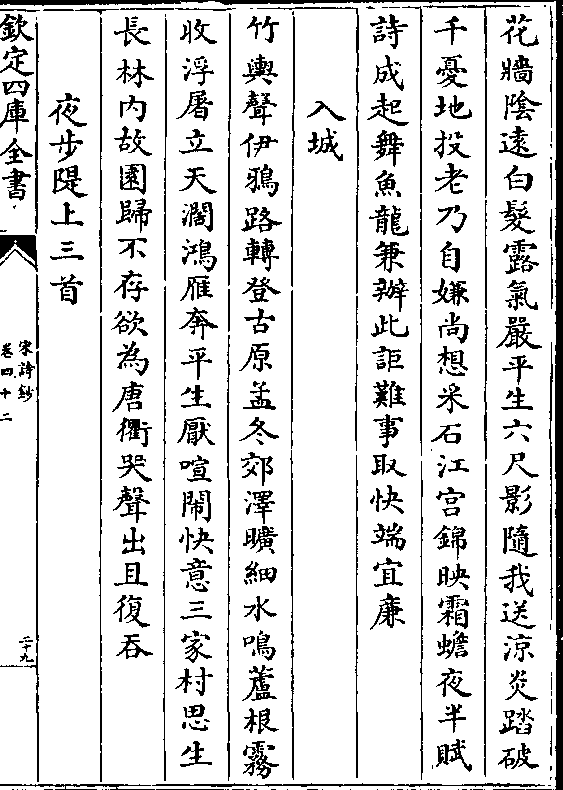 花牆陰遠白髮露氣嚴平生六尺影隨我送涼炎踏破
千憂地投老乃自嫌尚想采石江宫錦映霜蟾夜半賦
詩成起舞魚龍兼辦此詎難事取快端宜廉
入城
竹輿聲伊鴉路轉登古原孟冬郊澤曠細水鳴蘆根霧
收浮屠立天濶鴻雁奔平生厭喧鬧快意三家村思生
長林内故園歸不存欲為唐衢哭聲出且復吞
夜步隄上三首
欽定四庫全書
宋詩鈔
卷四十二
二十九